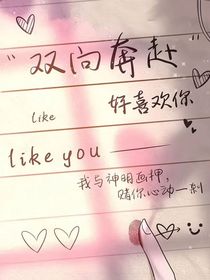 "双向奔赴"
好喜欢你
like
like you
我与神明画押,
赌你心动一刻